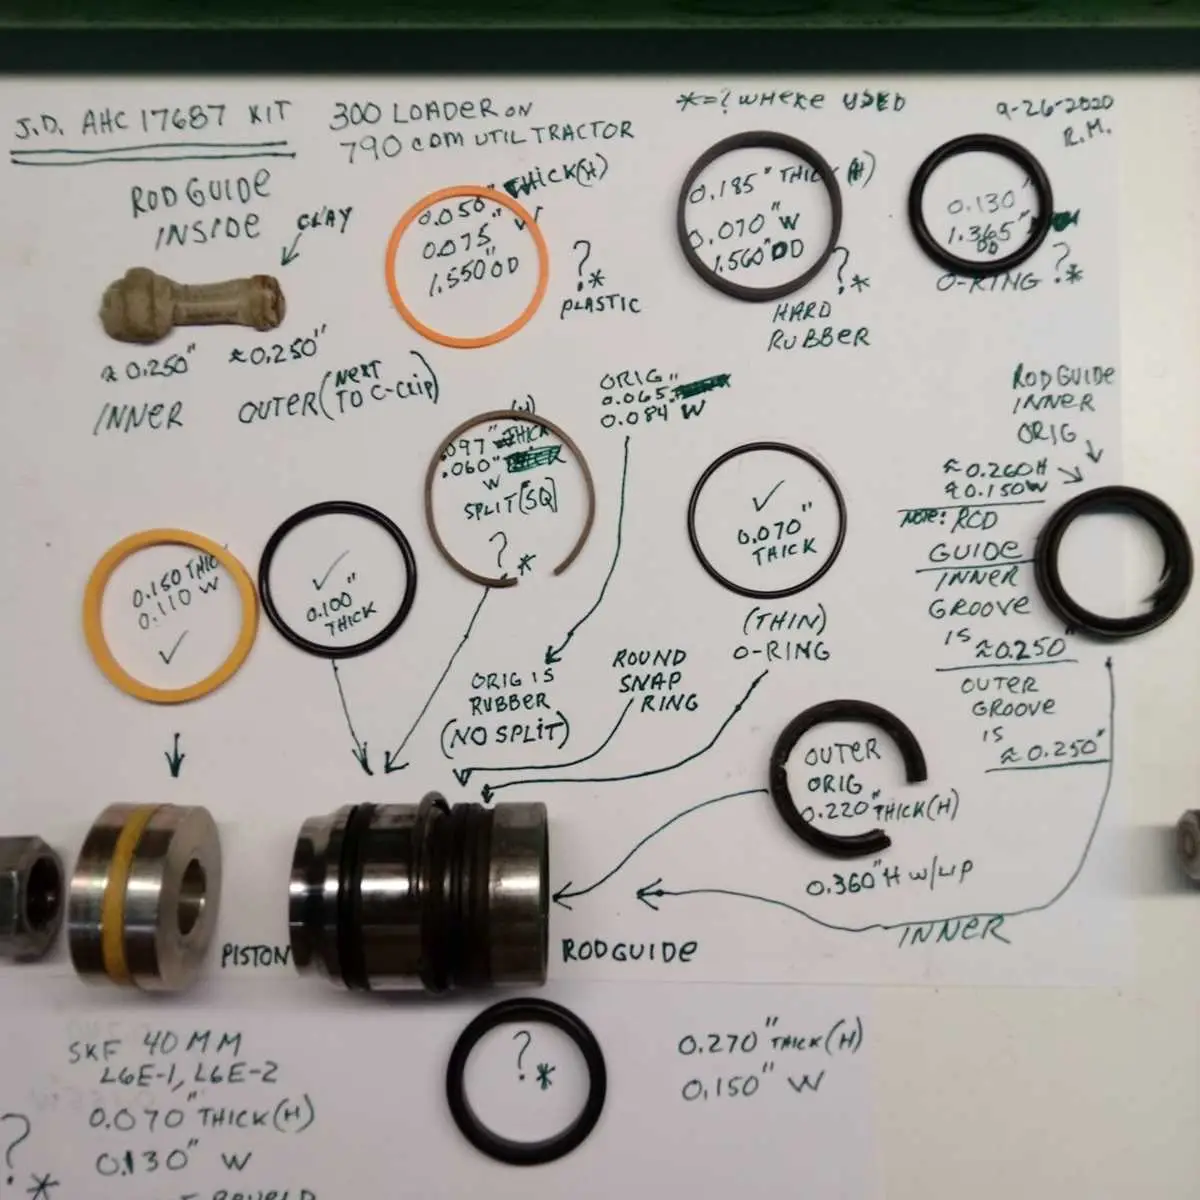 J.D. AHC 17687 KIT
300 LOADER ON
790 COM UTIL TRACTOR
*=? WHERE USED
9-26-2020
R.M.
ROD GUIDE
INSIDE
CLAY
≈ 0.250"
≈0.250"
INNER
OUTER (NEXT
TO C-CLIP)
0.050" THICK(H)
0.075"
1.550 OD
?
*
PLASTIC
0.185" THICK (H)
0.070" W
1.560" OD
?*
HARD
RUBBER
0.130"
1.365"
OD
O-RING ?*
ORIG
0.065"
0.084 W
(H)
.097" THICK
.060"
W
SPLIT (SQ)
?*
✓
0.070"
THICK
(THIN)
O-RING
ROD GUIDE
INNER
ORIG
≈0.260H
≈0.150W
NOTE: ROD
GUIDE
INNER
GROOVE
IS ≈0.250"
OUTER
GROOVE
IS
≈0.250"
0.150 THIC
0.110 W
✓
✓
0.100"
THICK
ORIG IS
RUBBER
(NO SPLIT)
ROUND
SNAP
RING
OUTER
ORIG
0.220" THICK(H)
0.360" H W/LIP
INNER
PISTON
ROD GUIDE
SKF 40 MM
L6E-1, L6E-2
0.070" THICK(H)
0.130" W
?
*
?
*
0.270" THICK(H)
0.150" W